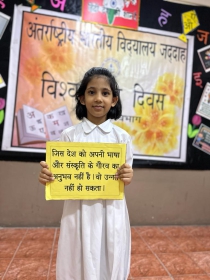 अंतर्राष्ट्रीय भारतीय विद्यालय जद्दाह
विश्व
दिवस
विभाग
जिस देश को अपनी भाषा
और संस्कृति के गौरव का
अनुभव नहीं है। वो उन्नत
नहीं हो सकता।